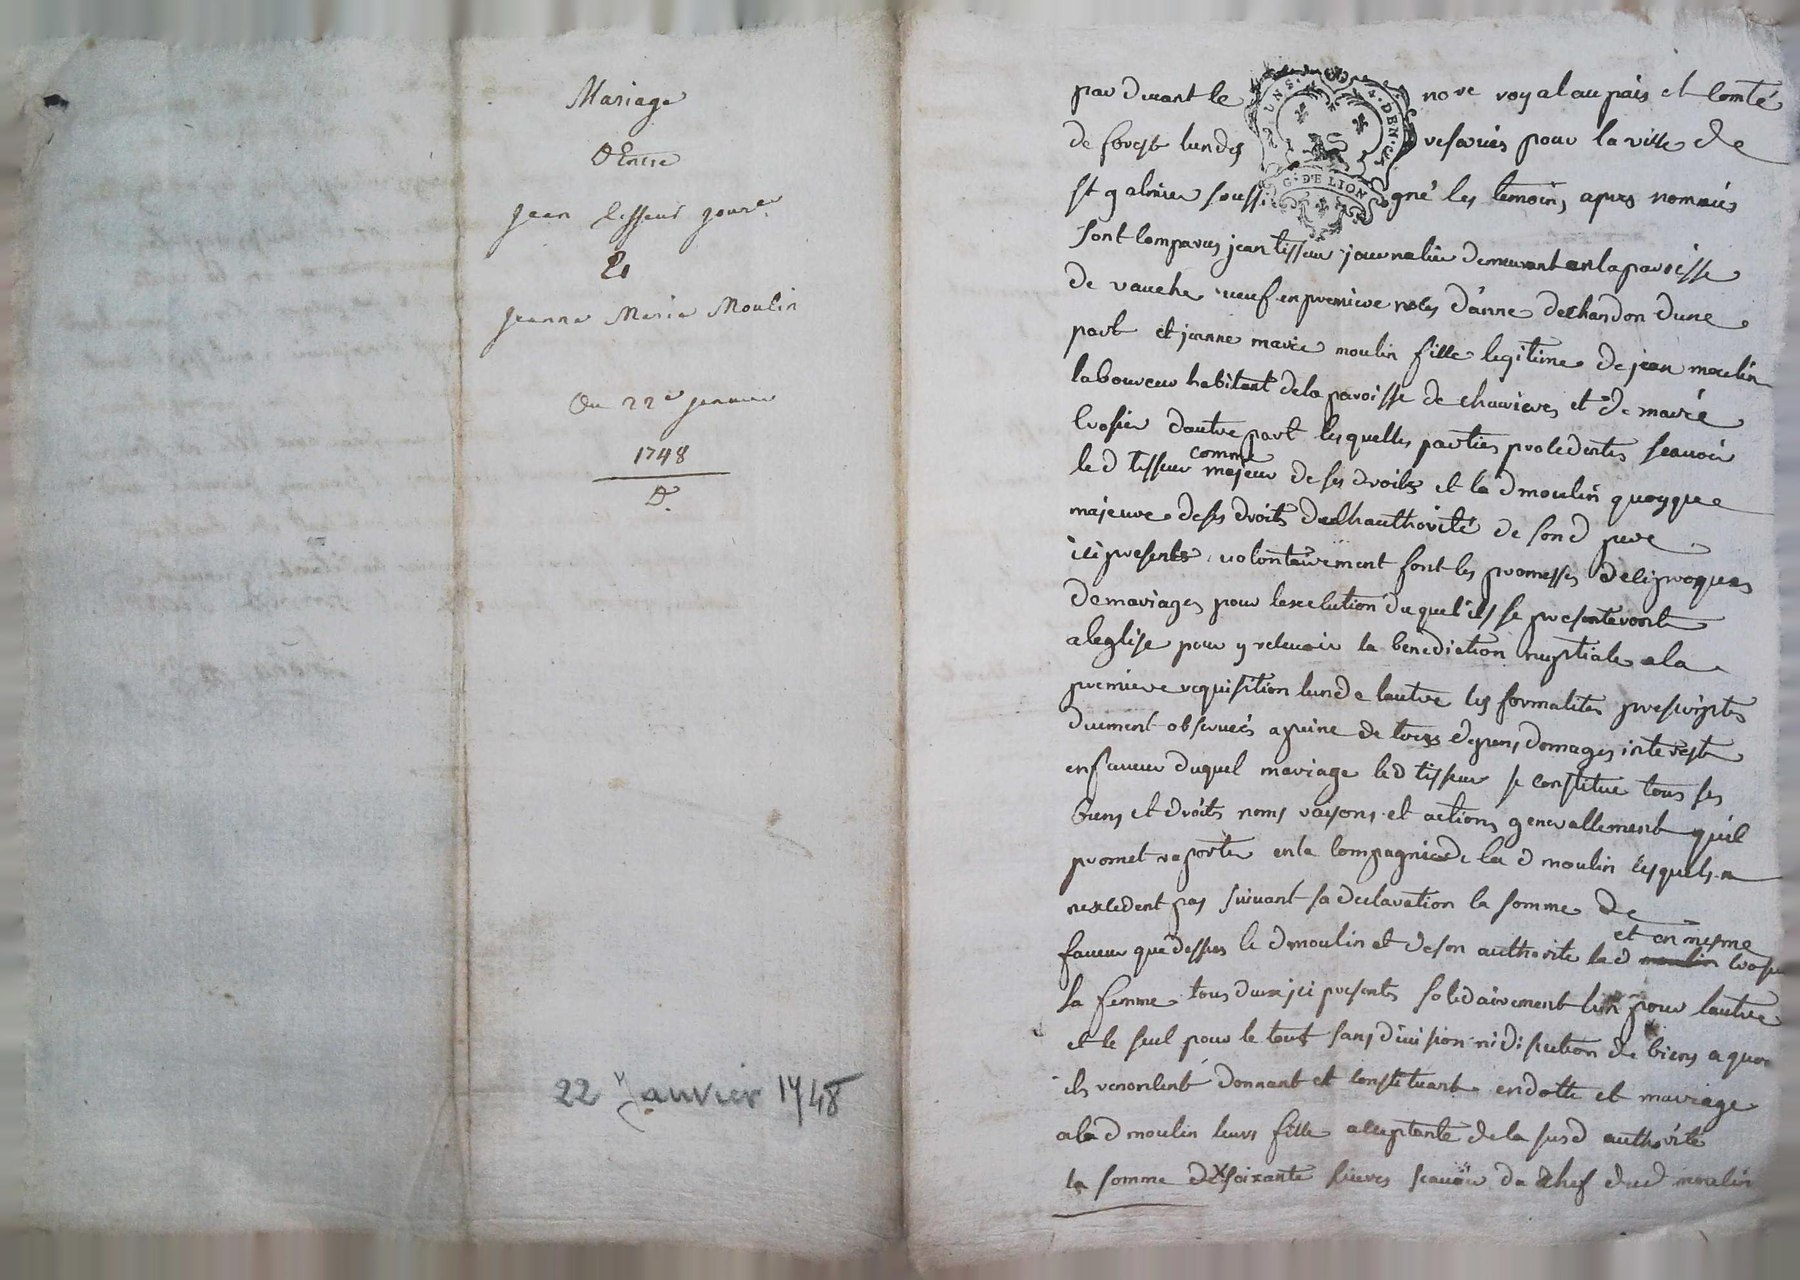 Mariage
D'Entre
Jean tisseur jour.er
Et
Jeanne Marie Moulin
Du 22e janvier
1748
D.
22 Janvier 1748
par devant le no re royal au païs et comté
de forest lun des reservés pour la ville de
st galmier souss. gné les temoins apres nommés
G. DE LION
sont comparus jean tisseur journalier demeurant en la paroisse
de vauche veuf en premiere noces d'anne dechandon dune
part et jeanne marie moulin fille legitime de jean moulin
laboureur habitant de la paroisse de et de marie
crosier dautre part lesquelles parties procedentes scauoir
comme
le d tisseur majeur de ses droits et la d moulin quoyque
majeure de ses droits de lhauthorité de son d pere
ici presents volontairement font les promesses reciproques
de mariages pour lexecution duquel ils se presenteront
a leglise pour y recevoir la benediction nuptiale a la
premiere requisition lun de lautre les formalites prescriptes
duement observés a peine de tous depens domages interest
en faveur duquel mariage led tisseur se constitue tous ses
biens et droits noms raisons et actions generallement quil
promet raporter en la compagnie de la d moulin lesquels n
nexcedent pas suivant sa declaration la somme de
et en mesme
faveur que dessus le d moulin et de son authorite la d moulin crosier
sa femme tous deux ici presents solidairement lun pour lautre
et le seul pour le tout sans division ni discution de biens a quoi
ils renoncent donnant et constituant en dotte et mariage
a la d moulin leurs fille acceptante de la susd authorité
la somme de soixante livres scavoir du chef dud moulin